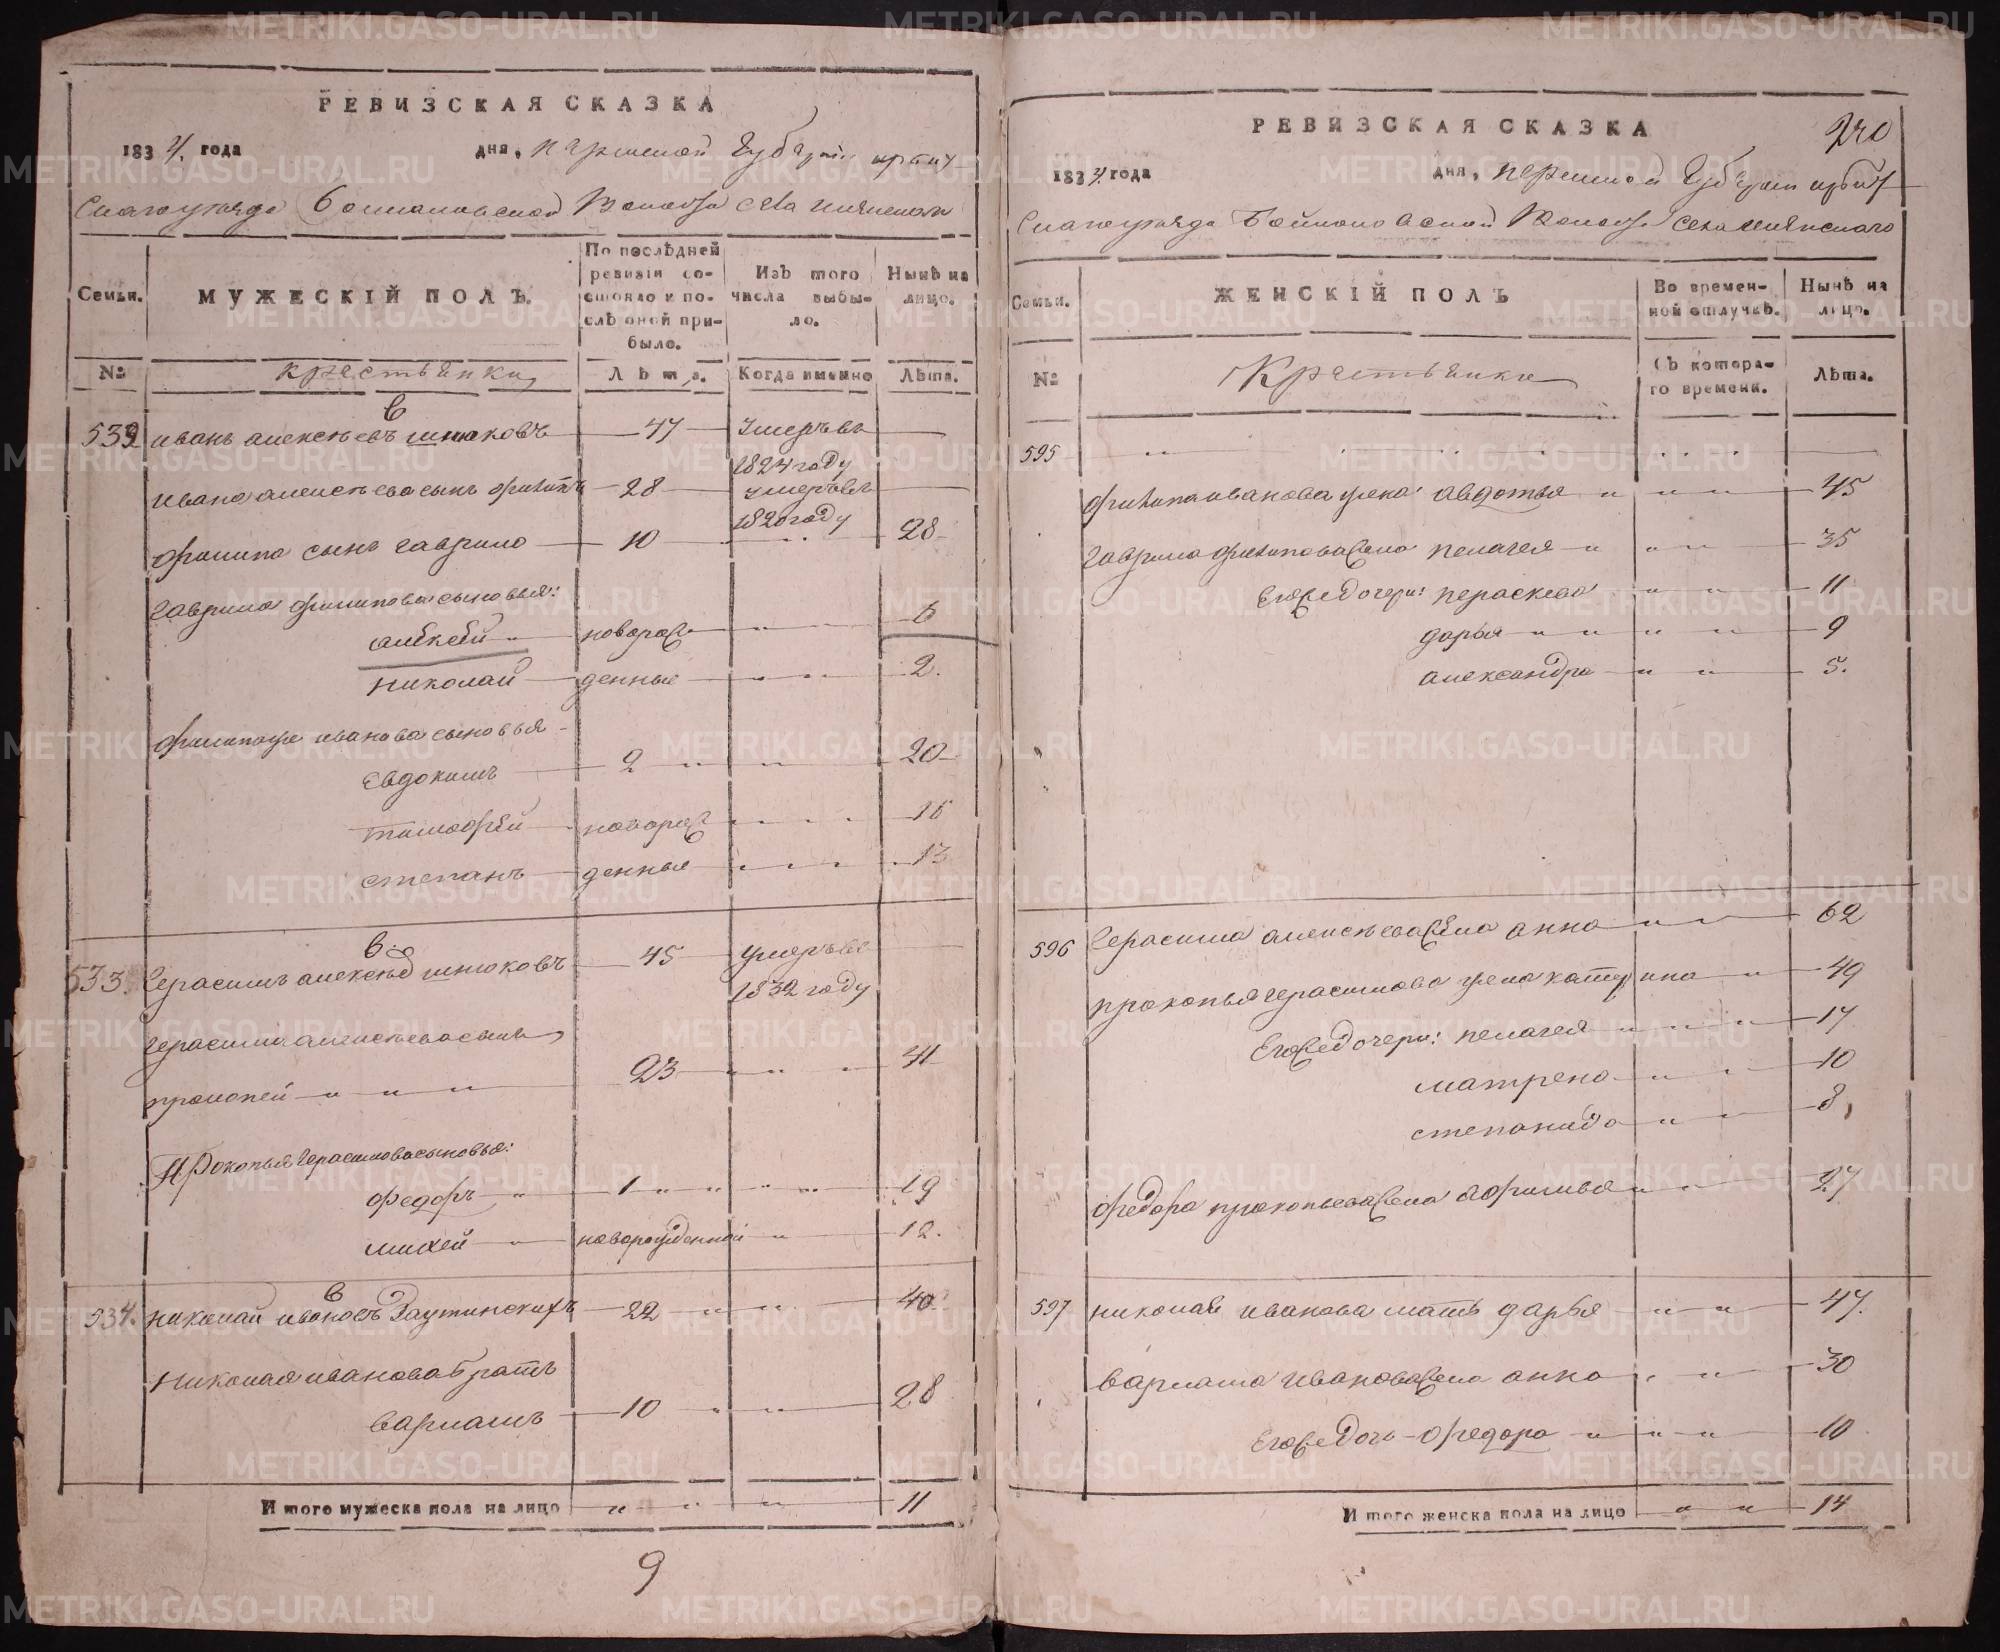 РЕВИЗСКАЯ СКАЗКА
1834. года дня, пермской губернии ирбит
скаго уезда Боишановской Волости села
Семьи. МУЖЕСКІЙ ПОЛЪ. По послѣдней ревизіи состояло и послѣ оной прибыло. Изъ того числа выбыло. Нынѣ на лицо.
№ крестьянки, Лѣта. Когда именно Лѣта.
539 иванъ алексѣевъ шнюковъ 47 умеръ въ
1827 году
ивана алексѣева сынъ филипъ 28 умеръ въ
1820 году
филипа сынъ гаврило 10 28
гаврила филипова сыновья:
алексѣй новорож 6
николай денныя 2.
филипа же иванова сыновья
евдокимъ 2 20
тимофѣй новорож 16
степанъ денныя 13
533. Герасимъ алексѣев шнюковъ 45 умеръ въ
1832 году
герасима алексѣева сынъ
прокопей 23 41
Прокопья герасимова сыновья:
федоръ 1 19
михей новорожденной 12.
534. николай ивановъ Заутинскихъ 22 40
николая иванова братъ
варламъ 10 28
Итого мужеска пола на лицо 11
9
РЕВИЗСКАЯ СКАЗКА 240
1834. года дня, пермской губернии ирбит
скаго уезда Боишановской Волости села
Семьи. ЖЕНСКІЙ ПОЛЪ Во временной отлучкѣ. Нынѣ на лицо.
№ Крестьянки Съ котораго времени. Лѣта.
595
филипа иванова жена авдотья 45
гаврила филипова жена пелагея 35
Его же дочери: параскева 11
дарья 9
александра 5.
596 Герасима алексѣева жена анна 62
прокопья герасимова жена катерина 49
Его же дочери: пелагея 17
матрена 10
степанида 8,
федора прокопьева жена афимья 27
597 николая иванова мать дарья 47.
варлама иванова жена анна 30
Его же дочь федора 10
Итого женска пола на лицо 14
METRIKI.GASO-URAL.RU